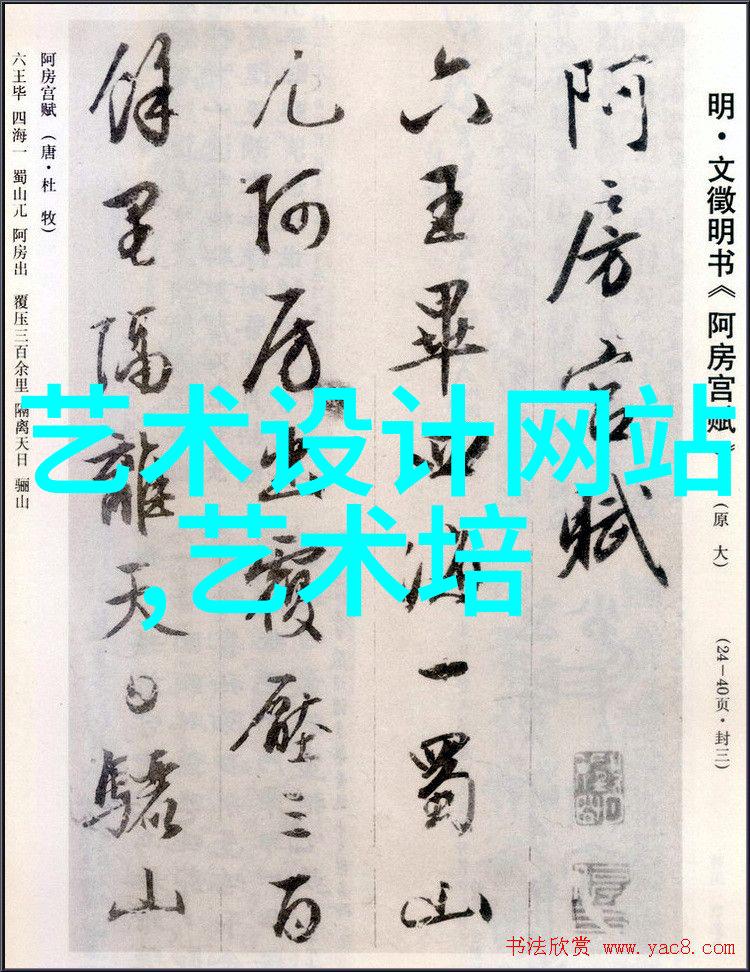 明·文徵明书《阿房宫赋》(原大) (24—40页·封三)
阿房宫赋
六王畢四海一蜀山
兀阿房出覆壓三百
餘里隔離天日驪山
阿房宫赋(唐·杜 牧)
六王毕 四海一 蜀山兀 阿房出 覆压三百余里 隔离天日 骊山
艺术设计网站
,艺术培
书法欣赏 www.yac8.com